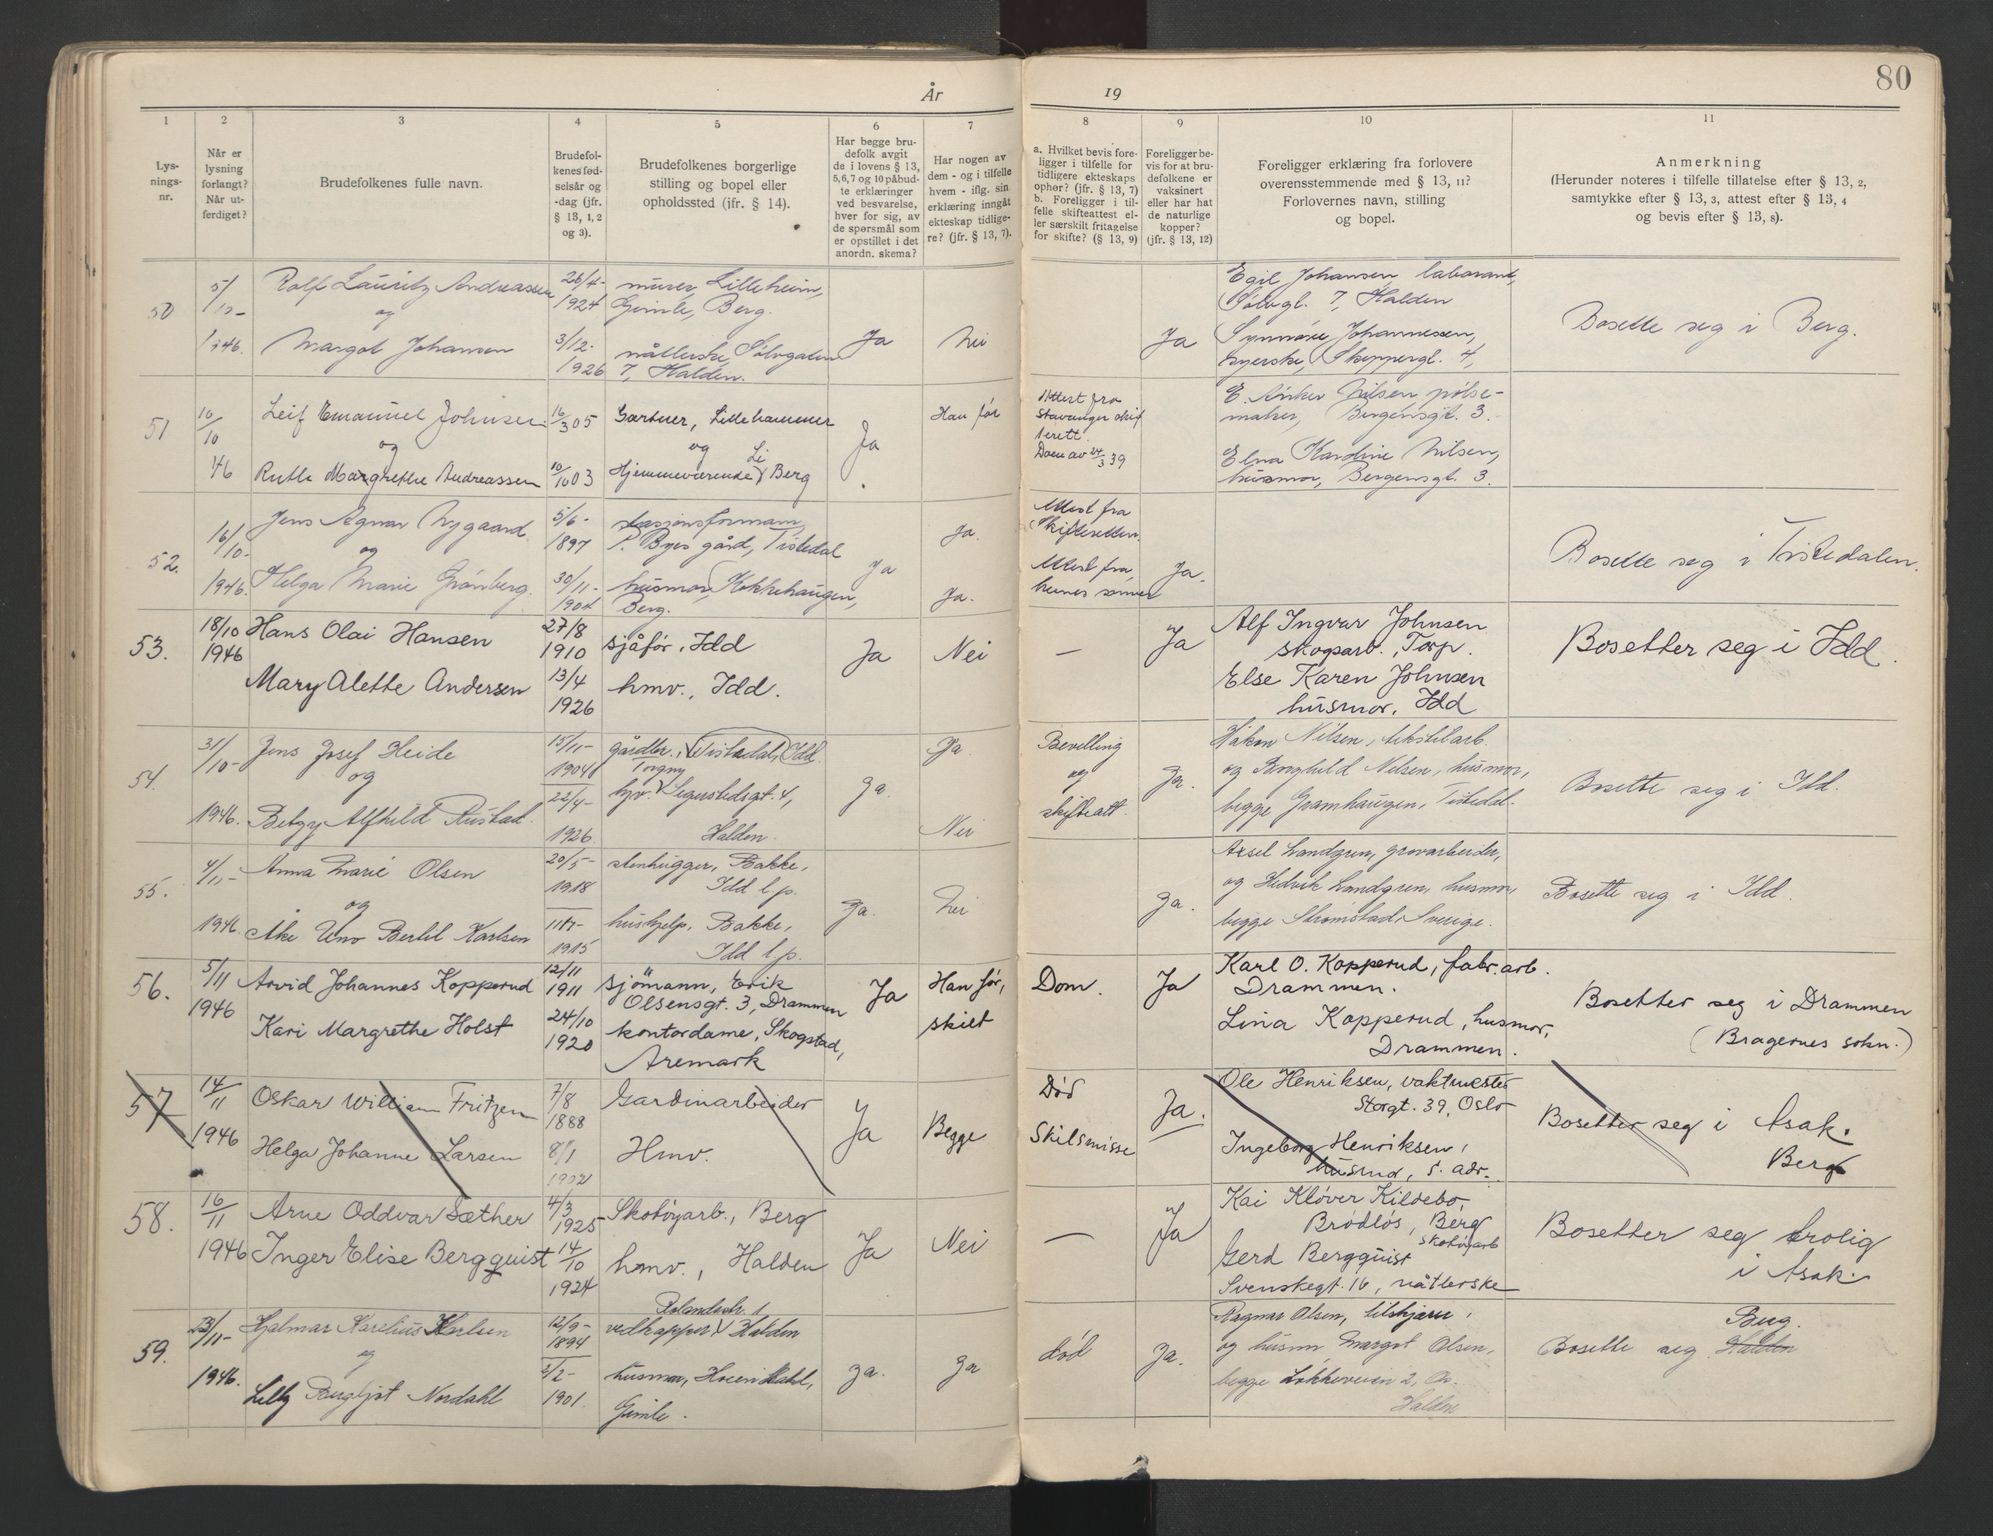 80
År
19
1
2
3
4
5
6
7
8
9
10
11
Lys-
nings-
nr.
Når er
lysning
forlangt?
Når ut-
ferdiget?
Brudefolkenes fulle navn.
Brudefol-
kenes fød-
selsår og
-dag (jfr.
§ 13, 1, 2
og 3).
Brudefolkenes borgerlige
stilling og bopel eller
opholdssted (jfr. § 14).
Har begge bru-
defolk avgit
de i lovens § 13,
5,6,7 og 10 påbud-
te erklæringer
ved besvarelse,
hver for sig, av
de spørsmål som
er opstillet i det
anordn. skema?
Har nogen av
dem - og i tilfelle
hvem - iflg. sin
erklæring inngåt
ekteskap tidlige-
re? (jfr. § 13, 7).
a. Hvilket bevis fore-
ligger i tilfelle for
tidligere ekteskaps
ophør? (jfr. § 13, 7)
b. Foreligger i til-
felle skifteattest el-
ler særskilt fritagelse
for skifte? (§ 13, 9)
Foreligger be-
vis for at bru-
defolkene er
vaksinert
eller har hat
de naturlige
kopper?
(jfr. § 13, 12)
Foreligger erklæring fra forlovere
overensstemmende med § 13, 11?
Forlovernes navn, stilling
og bopel.
Anmerkning
(Herunder noteres i tilfelle tillatelse efter § 13, 2,
samtykke efter § 13, 3, attest efter § 13, 4
og bevis efter § 13, 8).
50
5/
12-
1946.
Rolf Lauritz Andreassen
og
Margot Johansen
26/4-
1924
3/12-
1926
murer, Lilleheim,
Gimle, Berg.
nåtlerske Sølvgaten
7, Halden.
Ja
Nei
Ja
Egil Johansen laborant,
Sølvgt. 7, Halden
Synnøve Johannessen,
syerske, Skippergt. 4,
Bosette seg i Berg.
51
10/
10
46
Leif Emanuel Johnsen
og
Ruth Margrethe Andreassen
16/3 05
10/10 03
Gartner, Lillehammer
og
Li
Hjemmeværende, Berg
Ja
Han før
Attest fra
Stavanger skif
terett.
Dom av 24/3 39
E. Anker Nilsen pølse-
maker, Bergensgt. 3.
Elna Karoline Nilsen,
husmor, Bergensgt. 3.
52.
16/
10-
1946.
Jens Agnar Nygaard
og
Helga Marie Grønberg.
5/6-
1897
30/11-
1904
stasjonsformann,
P. Byes gård, Tistedal
husmor, Kokkehaugen,
Berg.
Ja
Ja.
Ja.
Attest fra
Skifteretten.
Attest fra
hennes sønner
Ja.
Bosette seg i Tistedalen.
53.
18/10
1946
Hans Olai Hansen
Mary Alette Andersen
27/8
1910
13/4
1926
sjåfør, Idd
hmv., Idd.
Ja
Nei
—
Ja
Alf Ingvar Johnsen
skogsarb., Torp.
Else Karen Johnsen
husmor, Idd
Bosetter seg i Idd.
54.
31/
10-
1946.
Jens Josef Heide
og
Betzy Alfhild Rustad.
15/11-
1904
22/4-
1926.
gårdbr., Tistedal, Idd.
Torgny
hjv. Segerstedsgt. 4,
Halden.
Ja.
Ja.
Nei
Bevilling
og
skifteatt.
Ja.
Håkon Nilsen, tekstilarb.
og Borghild Nilsen, husmor,
begge Gramhaugen, Tistedal.
Bosette seg i Idd.
55.
4/11-
1946.
Anna Marie Olsen
og
Åke Uno Bertil Karlsen
20/5-
1918
11/7-
1915
stenhugger, Bakke,
Idd l.p.
hushjelp, Bakke,
Idd l.p.
Ja.
Nei
Ja.
Axsel Landgren, grovarbeider,
og Hedvik Landgren, husmor,
begge Strømstad, Sverige.
Bosette seg i Idd.
56.
5/11
1946
Arvid Johannes Kopperud
Kari Margrethe Holst
12/11
1911
24/10
1920
sjömann, Erik
Olsensgt. 3, Drammen
kontordame, Skogstad,
Aremark
Ja
Han før,
skilt
Dom.
Ja
Karl O. Kopperud, fabr.arb.
Drammen.
Lina Kopperud, husmor,
Drammen.
Bosetter seg i Drammen
(Bragernes sokn.)
57
14/
11
1946
Oskar William Fritzen
Helga Johanne Larsen
7/8
1888
8/1
1902
Gardinarbeider
Hmv.
Ja
Begge
Død
Skilsmisse
Ja.
Ole Henriksen, vaktmester
Storgt. 39, Oslo
Ingeborg Henriksen,
husmor, s. adr.
Bosetter seg i Asak.
Berg
58.
16/
11
1946
Arne Oddvar Sæther
Inger Elise Bergquist
4/3
1925
14/
10
1924
Skotøyarb., Berg
hmv., Halden
Ja
Nei
—
Ja
Kai Kløver Kildebo,
Brödløs, Berg
skotøyarb
Gerd Bergquist
Svenskegt. 16, nåtlerske
Bosetter seg trolig
i Asak.
59.
23/
11-
1946.
Hjalmar Karelius Karlsen
og
Lilly Bergljot Nordahl
12/9-
1894
2/2-
1901.
Rolandsch. 1
vedkapper, Halden
husmor,
Gimle.
Ja.
Ja
død
Ja.
Ragnar Olsen,
og husm Margot Olsen,
begge Løkkeveien 2,
Halden
Berg.
Bosette seg Halden